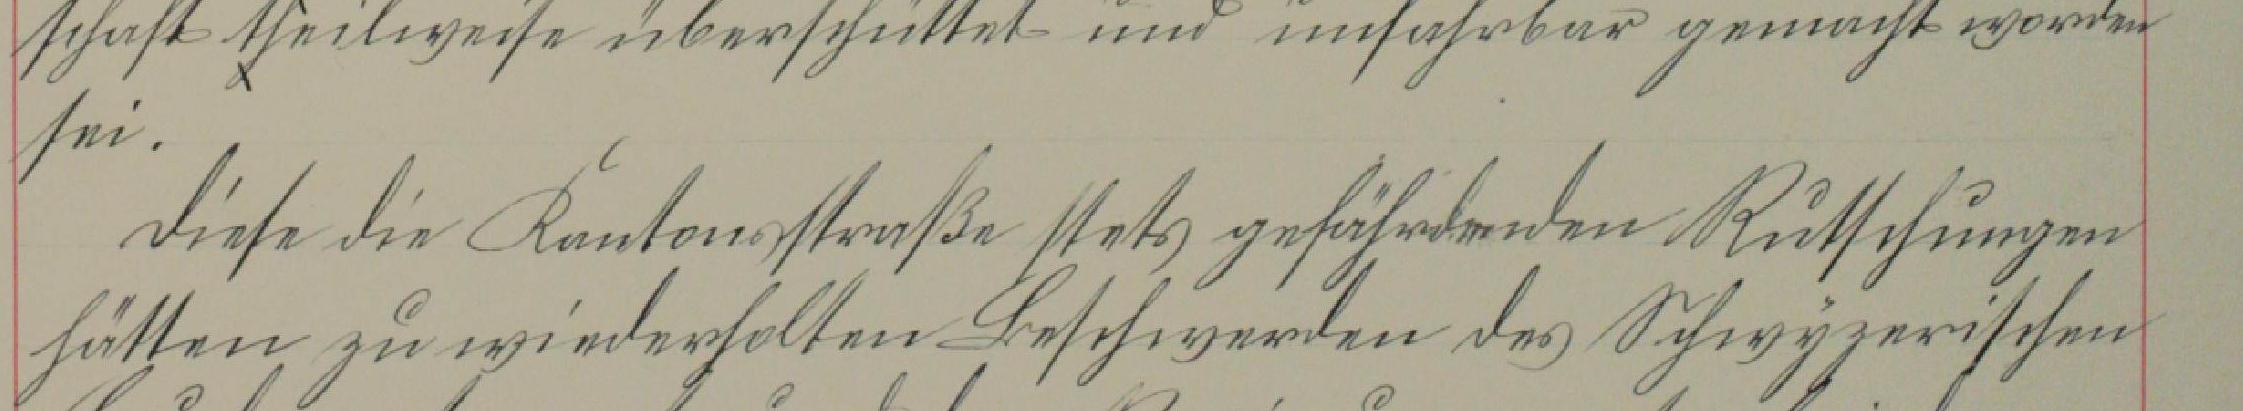 schaft theilweise überschüttet und unfahrbar gemacht worden
sei.
Diese die Kantonsstraße stets gefährdenden Rutschungen
hätten zu wiederholten Beschwerden des Schwÿzerischen